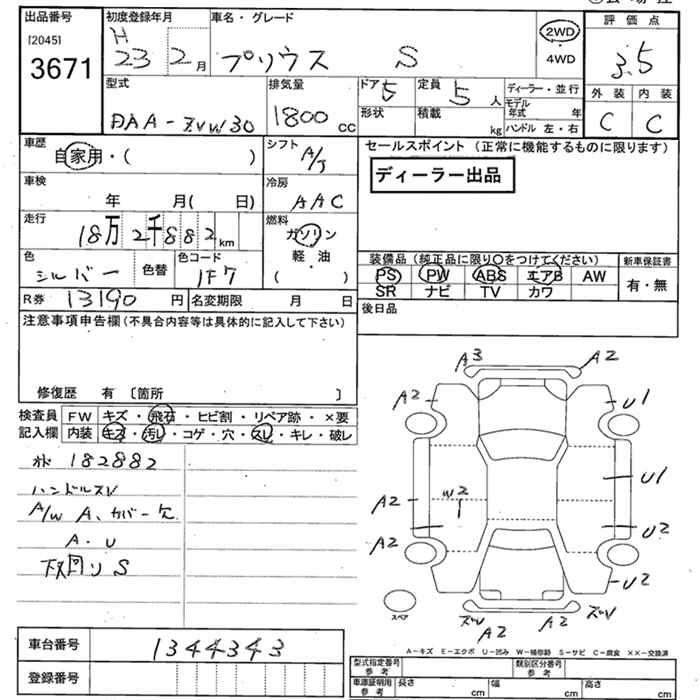 出品番号 初度登録年月 車名・グレード 2WD 評価点
[2045] H
3671 23 2月 プリウス S 4WD 3.5
型式 排気量 ドア 5 定員 5人 ディーラー・並行 外装 内装
DAA-ZVW30 1800 CC 形状 積載 kg モデル年式 年 C C
ハンドル 左・右
車歴 シフト セールスポイント (正常に機能するものに限ります)
自家用・( ) A/T ディーラー出品
車検 冷房
年 月( 日) AAC
走行 燃料
18万2千882km ガソリン
色 色替 色コード 軽・油 装備品(純正品に限り○をつけてください) 新車保証書
シルバー 1F7 ( ) PS PW ABS エアB AW 有・無
R券 13190円 名変期限 月 日 SR ナビ TV カワ
注意事項申告欄(不具合内容等は具体的に記入して下さい) 後日品
修復歴 有 〔箇所 〕
検査員 FW キズ・飛石・ヒビ割・リペア跡・×要
記入欄 内装 キズ・汚レ・コゲ・穴・スレ・キレ・破レ
182882
ハンドルスレ
A/W A、カバー欠
A・U
下回リ S
A3 A2
A2 U1
A2 W2 U1
A2 U2
U2
スペア A2 A2
A-キズ E-エクボ U-凹み W-補修跡 S-サビ C-腐食 ××-交換済
車台番号 1344343
登録番号
型式指定番号 参考 類別区分番号 参考
車庫証明用 参考 長さ cm 幅 cm 高さ cm